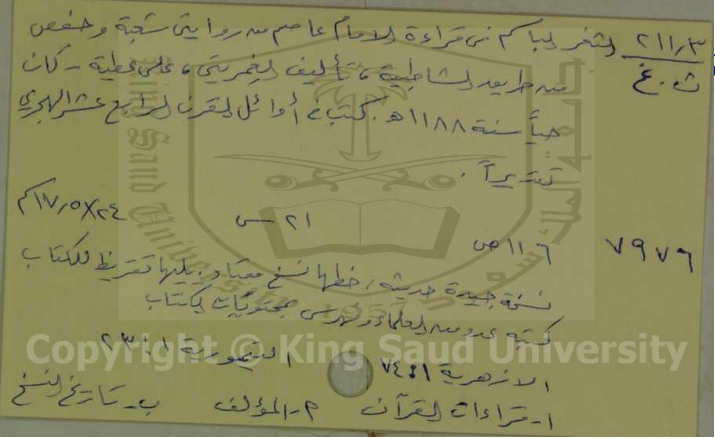 ٢١١٫٣ الثغر الباسم في قراءة الامام عاصم من روايتي شعبة وحفص
ث . غ من طريق الشاطبية ، تأليف الغمريني ، علي عطية - كان
حياً سنة ١١٨٨ هـ . كتب في أوائل القرن الرابع عشر الهجري
تقديراً .
٧٩٧٦ ١١٦ ص ٢١ س ٢٤×١٧٫٥ سم
نسخة جيدة حديثة ، خطها نسخ معتاد ، يليها تقريظ للكتاب
كتبه عدد من العلماء وفهرس محتويات الكتاب
الازهرية ١ : ٧٤ التيمورية ١ : ٢٣٠
١- قراءات القرآن ٢- المؤلف ب- تاريخ النسخ
Copyright © King Saud University
King Saud University
1957
جامعة الملك سعود